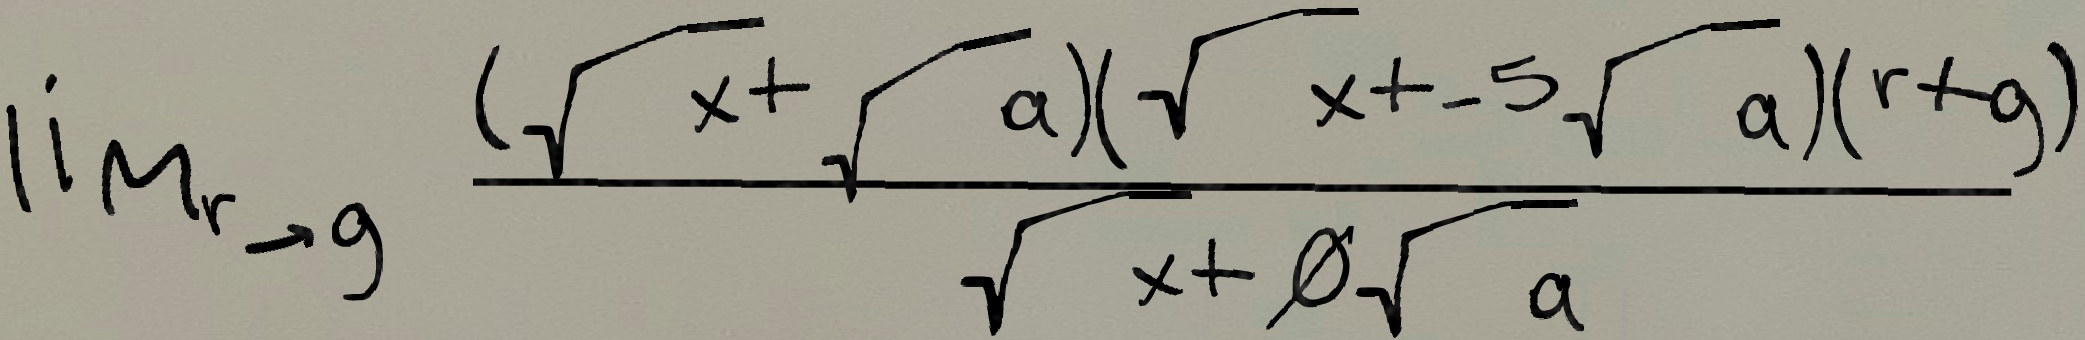 \lim_{r \to g} \frac{(\sqrt{x} + \sqrt{a})(\sqrt{x} + -5\sqrt{a})(r + g)}{\sqrt{x} + \emptyset\sqrt{a}}